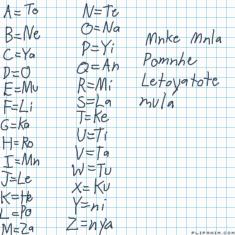 A=To
B=Ne
C=Ya
D=O
E=Mu
F=Li
G=Ka
H=Ro
I=Mn
J=Le
K=He
L=Po
M=Za
N=Te
O=Na
P=Yi
Q=An
R=Mi
S=La
T=Ke
U=Ti
V=Ta
W=Tu
X=Ku
Y=ni
Z=nya
Mnke Mnla
Pomnhe
Letoyatote
mula
FLIPANIM.COM